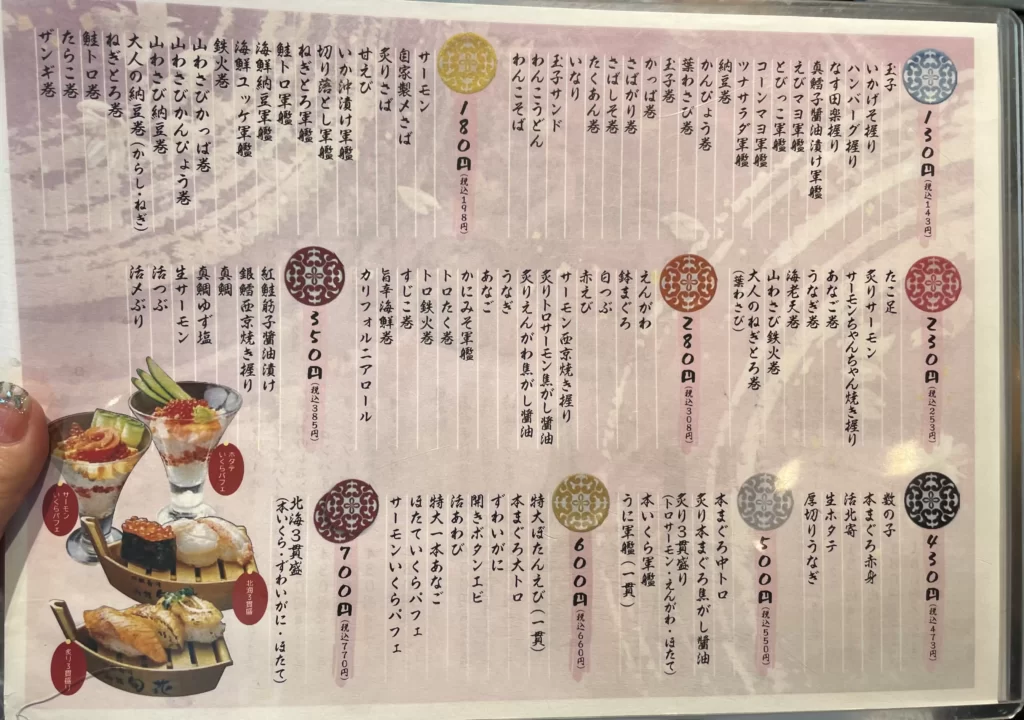 130円(税込143円)
玉子
いかげそ握り
ハンバーグ握り
なす田楽握り
真鱈子醤油漬け軍艦
えびマヨ軍艦
とびっこ軍艦
コーンマヨ軍艦
ツナサラダ軍艦
納豆巻
かんぴょう巻
葉わさび巻
玉子巻
かっぱ巻
さばがり巻
さばしそ巻
たくあん巻
いなり
玉子サンド
わんこうどん
わんこそば
180円(税込198円)
サーモン
自家製〆さば
炙りさば
甘えび
いか沖漬け軍艦
切り落とし軍艦
ねぎとろ軍艦
鮭トロ軍艦
海鮮納豆軍艦
海鮮ユッケ軍艦
鉄火巻
山わさびかっぱ巻
山わさびかんぴょう巻
山わさび納豆巻
大人の納豆巻(からし・ねぎ)
ねぎとろ巻
鮭トロ巻
たらこ巻
ザンギ巻
230円(税込253円)
たこ足
炙りサーモン
サーモンちゃんちゃん焼き握り
あなご巻
うなぎ巻
海老天巻
山わさび鉄火巻
大人のねぎとろ巻
(葉わさび)
280円(税込308円)
えんがわ
鉢まぐろ
白つぶ
赤えび
サーモン西京焼き握り
炙りトロサーモン焦がし醤油
炙りえんがわ焦がし醤油
うなぎ
あなご
かにみそ軍艦
トロたく巻
トロ鉄火巻
すじこ巻
旨辛海鮮巻
カリフォルニアロール
350円(税込385円)
紅鮭筋子醤油漬け
銀鱈西京焼き握り
真鯛
真鯛ゆず塩
生サーモン
活つぶ
活〆ぶり
430円(税込473円)
数の子
本まぐろ赤身
活北寄
生ホタテ
厚切りうなぎ
500円(税込550円)
本まぐろ中トロ
炙り本まぐろ焦がし醤油
炙り3貫盛り
(トロサーモン・えんがわ・ほたて)
本いくら軍艦
うに軍艦(一貫)
600円(税込660円)
特大ぼたんえび(一貫)
本まぐろ大トロ
ずわいがに
開きボタンエビ
活あわび
特大一本あなご
ほたていくらパフェ
サーモンいくらパフェ
700円(税込770円)
北海3貫盛
(本いくら・ずわいがに・ほたて)
ホタテ
いくらパフェ
サーモン
いくらパフェ
北海3貫盛
炙り3貫盛り